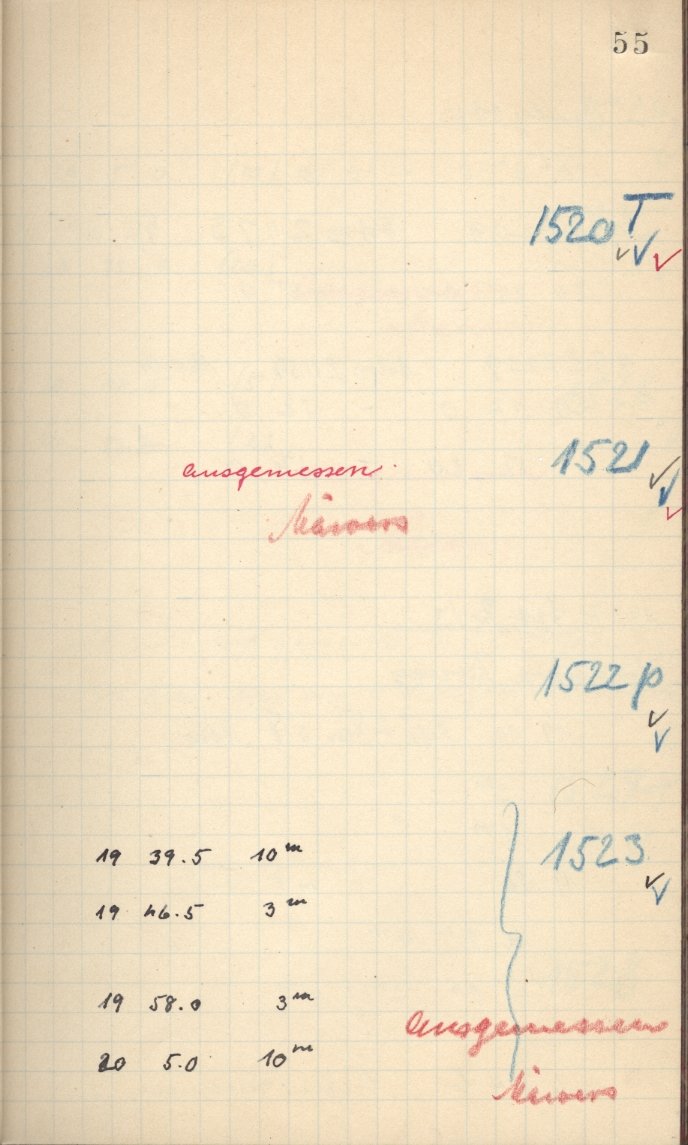 55
1520 T
1521
ausgemessen.
1522 p
1523
19 39.5 10 m
19 46.5 3 m
19 58.0 3 m
20 5.0 10 m
ausgemessen